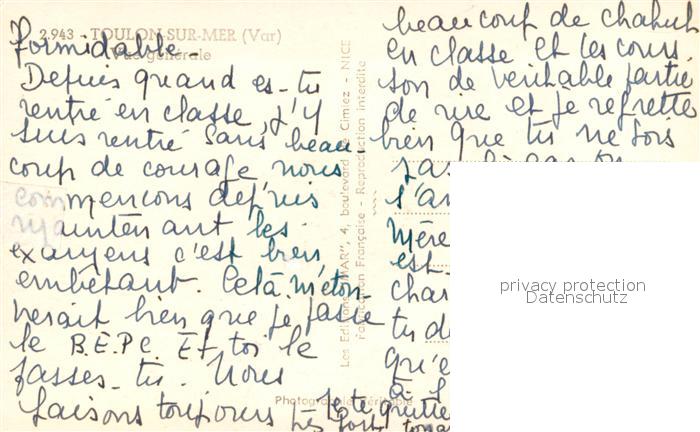 2.943 - TOULON-SUR-MER (Var)
Vue générale
formidable.
Depuis quand es-tu
rentré en classe, j'y
suis rentré sans beau-
coup de courage nous
commencons depuis
maintenant les
examens c'est bien
embêtant. Celà m'éton-
nerait bien que je passe
le B.E.P.C. Et toi le
passes-tu. Nous
faisons toujours très
beaucoup de chahut
en classe et les cours
son de veritable partie
de rire et je regrette
bien que tu ne sois
pas
s'a
mère
est
char
tu d
qu'e
à
Je te quitte
Les Editions "MAR", 4, boulevard de Cimiez - NICE
Fabrication Française - Reproduction interdite
Photographie véritable
privacy protection
Datenschutz